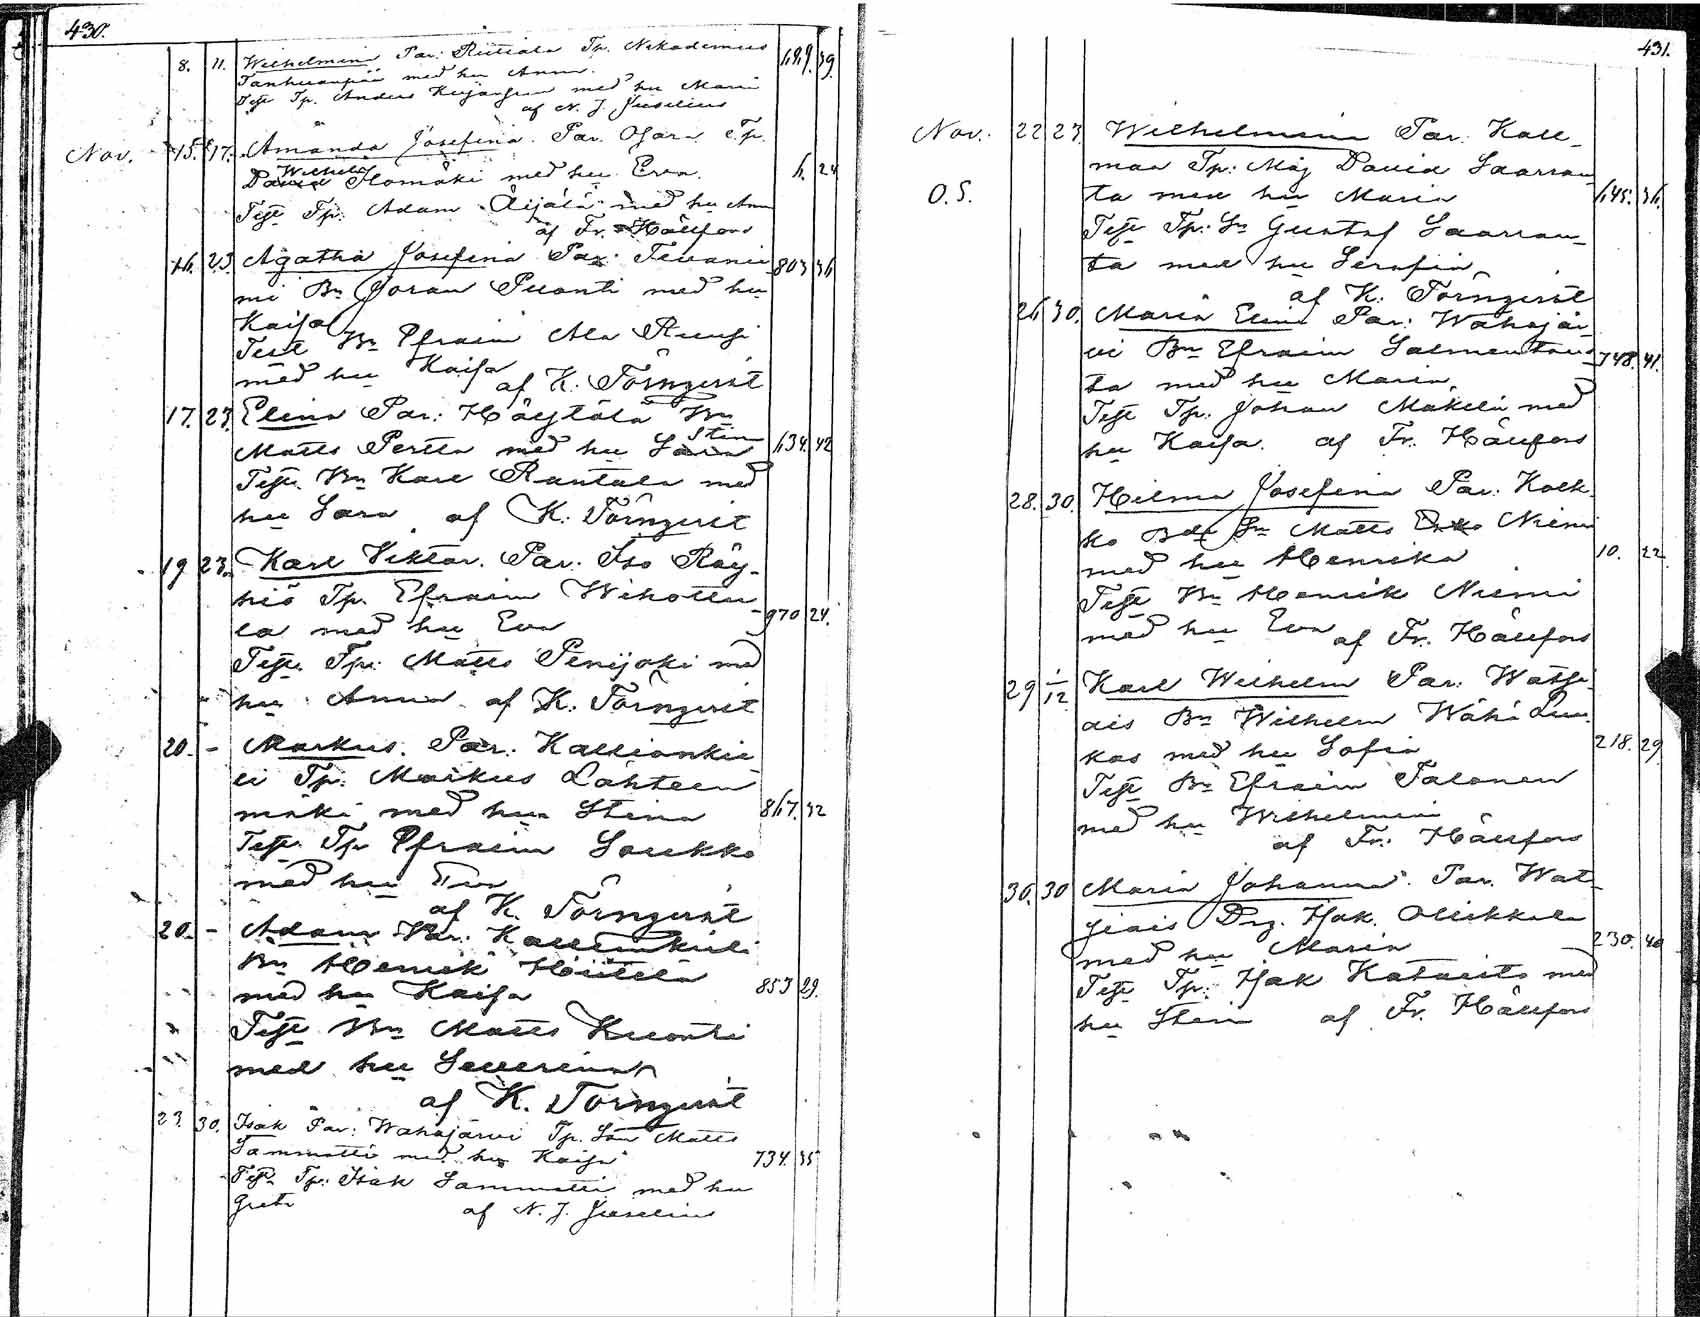 430.
8. 11. Wilhelmina Par: Tp. Nikodemus
med hu Anna.
Test Tp. Anders med hu Maria
af N. J. Juselius
Nov. 15. 17. Amanda Josefina. Par. Ojara Tp.
Wilhelm
Ilomäki med hu Eva. 6. 24
Test Tp. Adam Äijälä med hu Ann
af Fr. Hällfors
16. 23. Agatha Josefina Par: Tevanie 803 36
mi Bn Göran Puonti med hu
Kaisa
Test Bn Efraim Ala Ruusi
med hu Kaisa
af K. Törnqvist
17. 23. Elina Par: Höytölä Bn
Stina
Matts Perttu med hu 634. 42
Test. Bn Karl Rantala med
hu Sara af K. Törnqvist
19 23. Karl Viktor. Par: Iso Röy-
hiö Tp. Efraim Wihottu
la med hu Eva 970 24.
Test. Tp. Matts Penijoki med
hu Anna af K. Törnqvist
20. - Markus. Par: Kallionkie
li Tp: Markus Lähteen
mäki med hu Stina 867. 32
Test. Tp Efraim Loukko
med hu Eva
af K. Törnqvist
20. - Adam Par: Kallionkieli
Bn Henrik Hiitelä
med hu Kaisa 853 29.
Test Bn Matts Kuonti
med hu Severina
af K. Törnqvist
23. 30. Isak Par: Wahojärvi Tp. Son Matts
Sammatti med hu Kaisa 734. 35
Test. Tp: Isak Sammatti med hu
Greta
af N. J. Juselius
431.
Nov. 22 23. Wilhelmina Par. Kall-
maa Tp: Måg David Saarran
O. S. ta med hu Maria 645. 36.
Test Tp: Sn Gustaf Saarran-
ta med hu Serafia
af K. Törnqvist
26 30. Maria Elina Par: Wahojär
vi Bn Efraim Salmentaus 748. 41.
ta med hu Maria,
Test Tp. Johan Mäkelä med
hu Kaisa. af Fr. Hällfors
28. 30. Hilma Josefina Par: Kolk
ko Bde Sn Matts Niemi
med hu Henrika 10. 22
Test Bn Henrik Niemi
med hu Eva af Fr. Hällfors
29 1/12 Karl Wilhelm Par: Watsi-
ais Bn Wilhelm Wähä Luu
kas med hu Sofia 218. 29
Test Bn Efraim Talonen
med hu Wilhelmina
af Fr. Hällfors
30. 30 Maria Johanna. Par. Wat-
siais Drg. Isak Ollikkala
med hu Maria 230. 40
Test Tp. Isak med
hu Stina af Fr. Hällfors